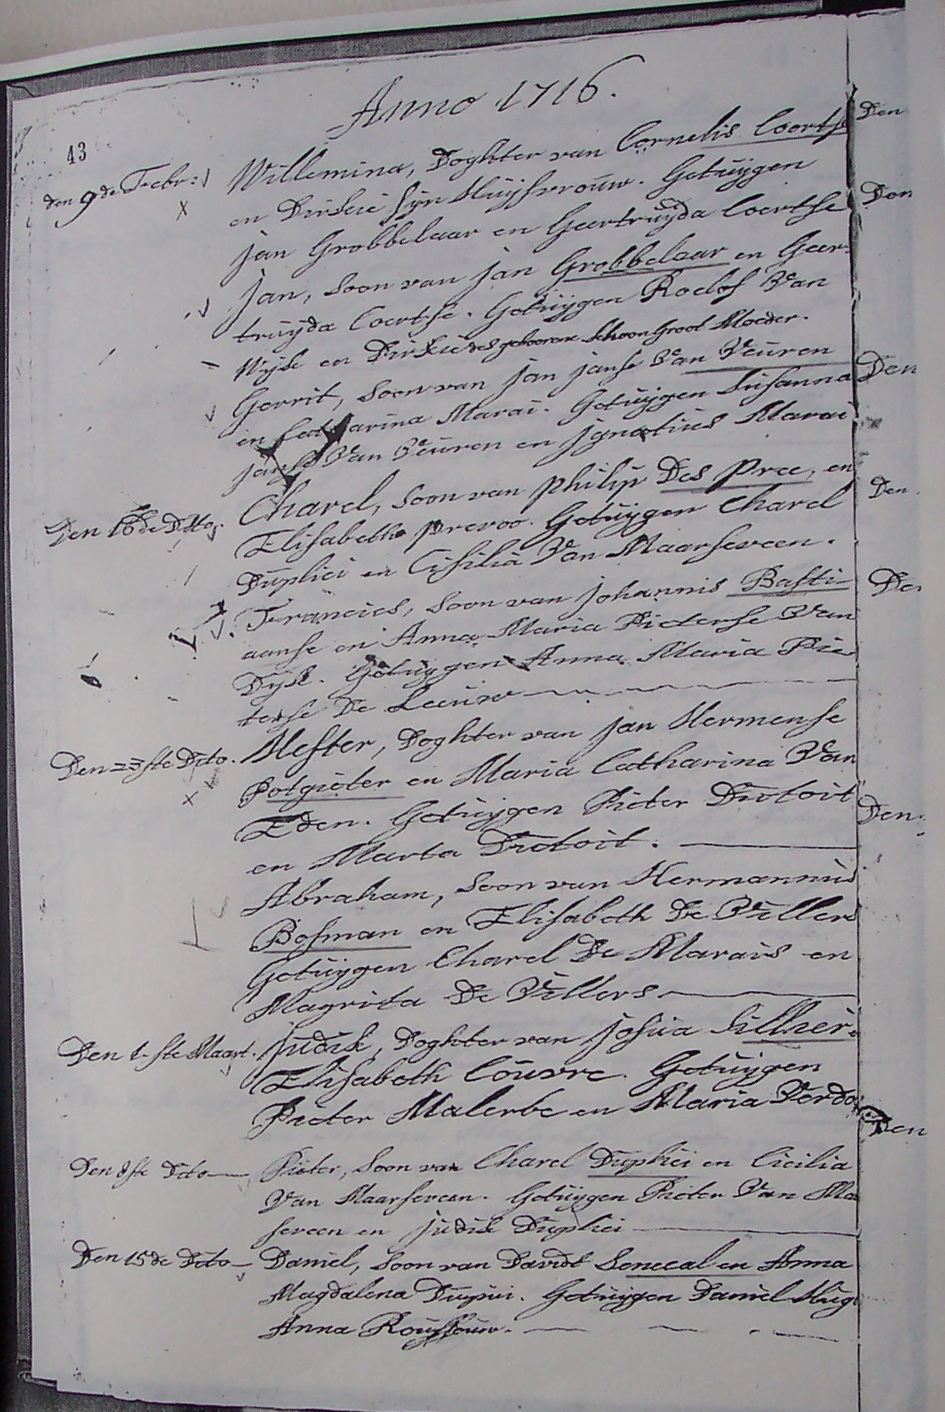 Anno 1716.
43
den 9de Febr: Willemina, Doghter van Cornelis Coertse
en Dirkie syn Huijsvrouw. Getuijgen
Jan Grobbelaar en Geertruijda Coertse
Jan, Soon van Jan Grobbelaar en Geer-
truijda Coertse. Getuijgen Roelof Van
Wijk en Dirkie des geboorene Schoon Groot Moeder.
Gerrit, Soon van Jan Janse Van Veuren
en Catharina Marai. Getuijgen Susanna
Janse Van Veuren en Ignatius Marai
Den 16de Ditto. Charel, Soon van Philip Des Pree, en
Elisabeth Prevoo. Getuijgen Charel
Duplici en Cisilia Van Maarseveen.
Francies, Soon van Johannis Basti-
aanse en Anna Maria Pieterse Van
Dijk. Getuijgen Anna Maria Pie
terse De Leeuw
Den 23ste Dito. Hester, Doghter van Jan Hermense
Potgieter en Maria Catharina Van
Eden. Getuijgen Pieter Dutoit
en Marta Dutoit.
Abraham, Soon van Hermannus
Bosman en Elisabeth De Villers
Getuijgen Charel De Marais en
Magrita De Villers
Den 1-ste Maart. Judik, Doghter van Josua Sillier.
Elisabeth Couvre. Getuijgen
Pieter Malerbe en Maria Verdo
Den 8ste Dito Pieter, Soon van Charel Duplici en Cicilia
Van Maarseveen. Getuijgen Pieter Van Ma
seveen en Judik Duplici
Den 15de Dito Daniel, Soon van Davidt Senecal en Anna
Magdalena Dupui. Getuijgen Daniel Hug
Anna Roussouw.
Den
Den
Den
Den
Den
Den
Den